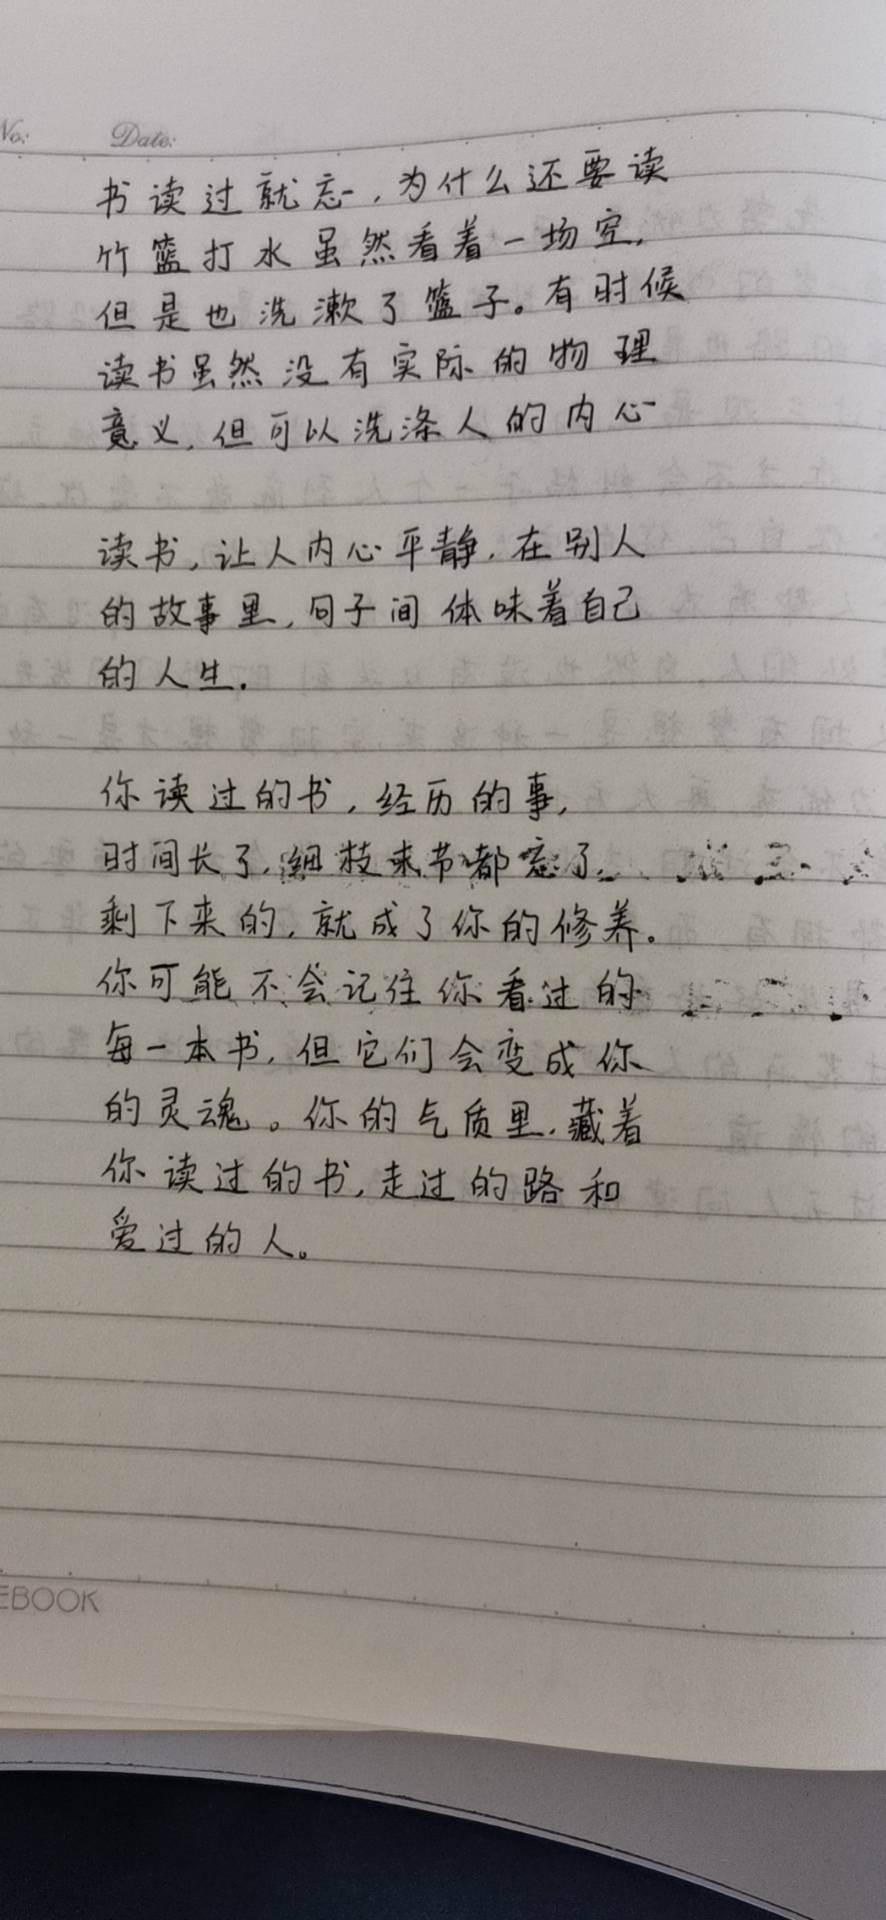 No: Date:
书读过就忘,为什么还要读
竹篮打水虽然看着一场空,
但是也洗漱了篮子。有时候
读书虽然没有实际的物理
意义,但可以洗涤人的内心
读书,让人内心平静,在别人
的故事里,句子间体味着自己
的人生.
你读过的书,经历的事,
时间长了,细枝末节都忘了,
剩下来的,就成了你的修养。
你可能不会记住你看过的
每一本书,但它们会变成你
的灵魂。你的气质里,藏着
你读过的书,走过的路和
爱过的人。
EBOOK